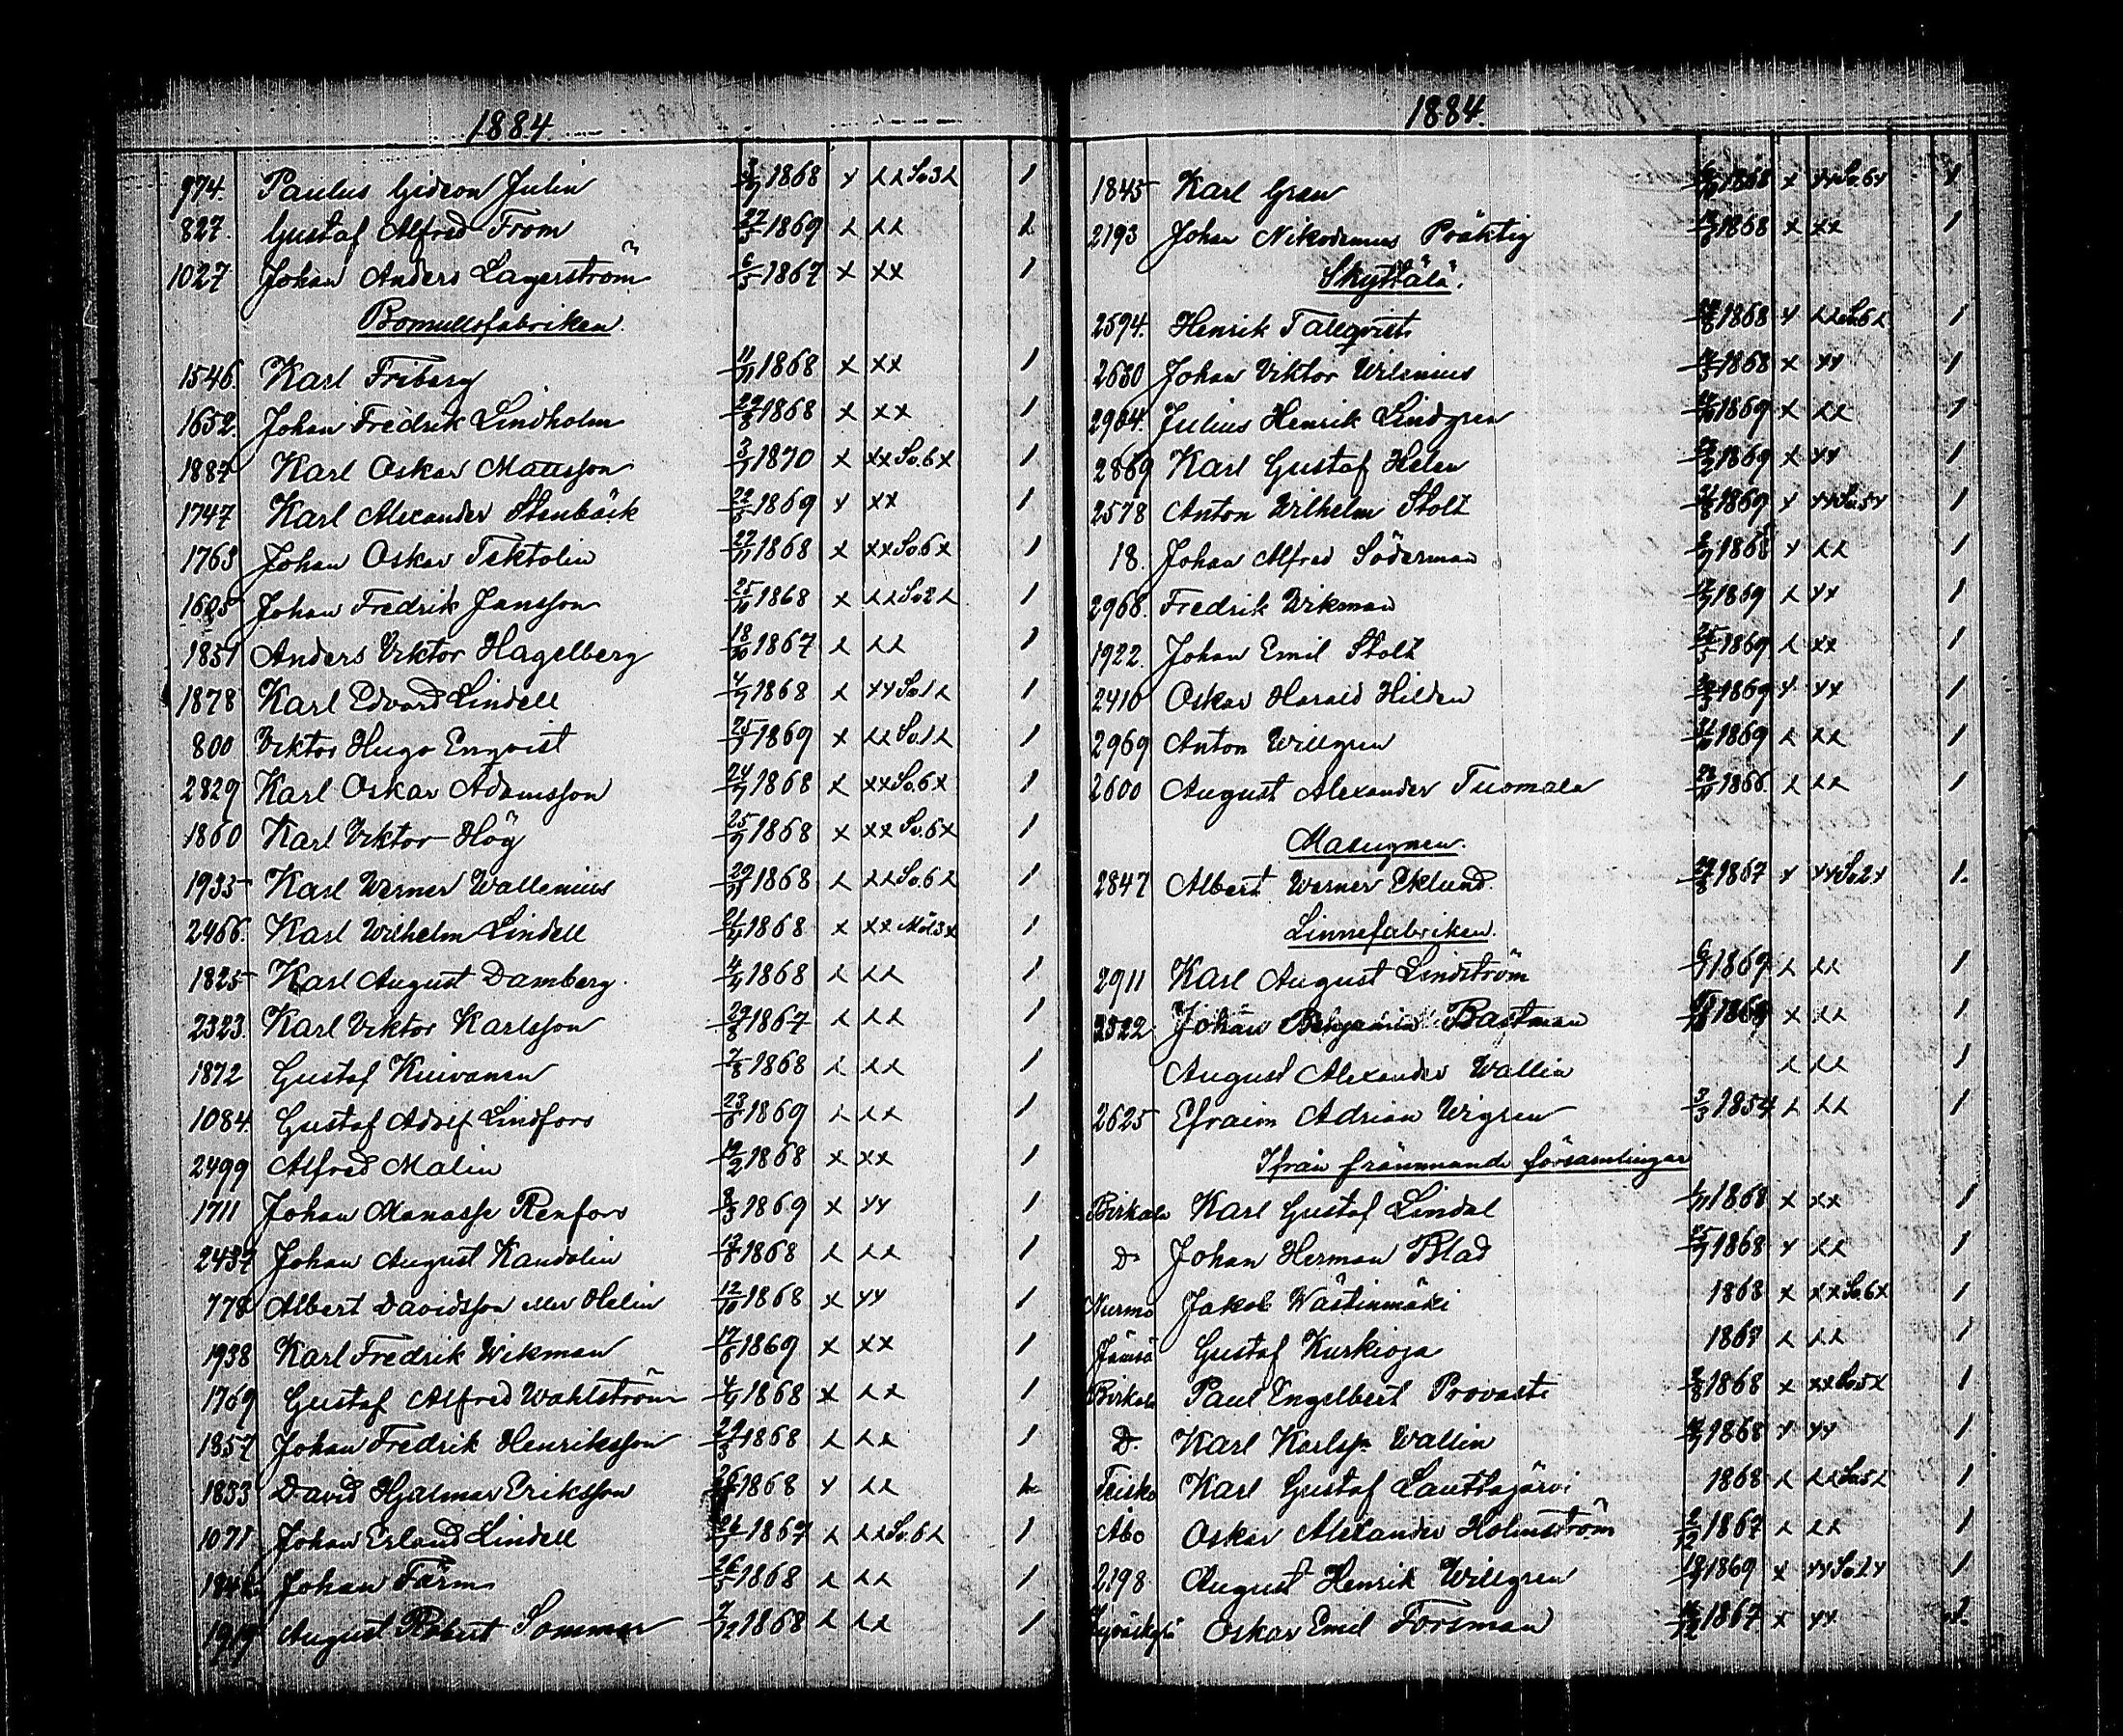 1884
974. Paulus Gideon Julin 1868 x xx So3x 1
827. Gustaf Alfred From 22/3 1869 x xx 2
1027 Johan Anders Lagerström 6/3 1867 x xx 1
Bomullsfabriken.
1546 Karl Friberg 11/11 1868 x xx 1
1652. Johan Fredrik Lindholm 29/8 1868 x xx 1
1887 Karl Oskar Mattsson 3/1 1870 x xx So.6x 1
1747 Karl Alexander Stenbäck 22/3 1869 x xx 1
1763 Johan Oskar Tektolin 22/11 1868 x xx So.6x 1
1605 Johan Fredrik Jansson 25/10 1868 x xx So2x 1
1851 Anders Viktor Hagelberg 18/10 1867 x xx 1
1878 Karl Edvard Lindell 4/9 1868 x xx So1x 1
800 Viktor Hugo Enqvist 25/7 1869 x xx So.1x 1
2829 Karl Oskar Adamsson 24/7 1868 x xx So.6x 1
1860 Karl Viktor Hög 25/9 1868 x xx So.6x 1
1935 Karl Werner Wallenius 1868 x xx So.6x 1
2466. Karl Wilhelm Lindell 21/4 1868 x xx 1
1825 Karl August Damberg. 4/4 1868 x xx 1
2323. Karl Viktor Karlsson 29/8 1867 x xx 1
1872 Gustaf Kuivanen 7/8 1868 x xx 1
1084. Gustaf Adolf Lindfors 23/6 1869 x xx 1
2499 Alfred Malin 19/2 1868 x xx 1
1711 Johan Manasse Renfors 8/3 1869 x xx 1
2437 Johan August Kandolin 1868 x xx 1
778 Albert Davidsson eller Helin 12/10 1868 x xx 1
1938 Karl Fredrik Wikman 17/6 1869 x xx 1
1769 Gustaf Alfred Wahlström 4/9 1868 x xx 1
1857 Johan Fredrik Henriksson 29/3 1868 x xx 1
1833 David Hjalmar Eriksson 1868 x xx
1071 Johan Erland Lindell 1867 x xx So.6x 1
Johan Färm 26/5 1868 x xx 1
1919 August Robert Sommar 7/12 1868 x xx 1
1884.
1845 Karl Gran 1868 x xx So.6x 1
2193 Johan Nikodemus Präktig 1868 x xx 1
Skyttälä.
2594. Henrik Tallqvist 1868 x xx So.6x 1
2630 Johan Viktor Wilenius 1868 x xx 1
2964. Julius Henrik Lindgren 1869 x xx 1
2869 Karl Gustaf Helen 23/2 1869 x xx 1
2578 Anton Wilhelm Stolt 1869 x xx So.5x 1
18. Johan Alfred Söderman 1868 x xx 1
2968. Fredrik Wikman 1869 x xx 1
1922. Johan Emil Stolt 25/5 1869 x xx 1
2410 Oskar Harald Hilden 1869 x xx 1
2969 Anton Willgren 1869 x xx 1
2600 August Alexander Tuomala 1866. x xx 1
Masugnen.
2847 Albert Werner Eklund. 1867 x xx So2x 1.
Linnefabriken.
2911 Karl August Lindström 1869 x xx 1
2522 Johan Benjamin Bastman x xx 1
August Alexander Wallin x xx 1
2625 Efraim Adrian Wigren 3/3 1854 x xx 1
Ifrån främmande församlingar
Birkala Karl Gustaf Lindal 1868 x xx 1
D. Johan Herman Blad 1868 x xx 1
Nurmo Jakob Wästinmäki 1868 x xx So.6x 1
Jämsä Gustaf Kurkioja 1867 x xx 1
Birkala Paul Engelbert Provasti 1868 x xx So5x 1
D. Karl Karlsn Wallin 1868 x xx 1
Teisko Karl Gustaf Lauttajärvi 1868 x xx So5x 1
Åbo Oskar Alexander Holmström 2/12 1867 x xx 1
2198 August Henrik Willgren 1869 x xx So2x 1
Jyväskylä Oskar Emil Forsman 1867 x xx